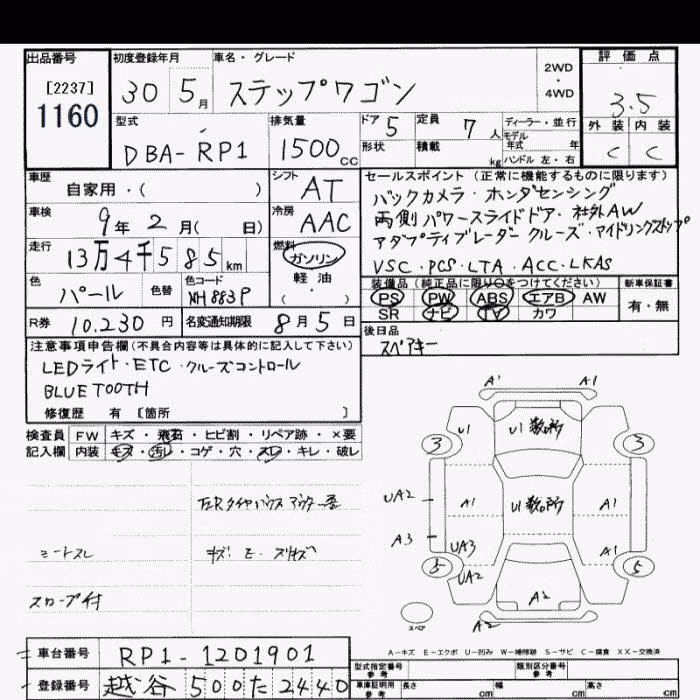 出品番号 初度登録年月 車名・グレード 2WD・4WD 評価点
[2237]
1160
30 5月 ステップワゴン 3.5
型式 排気量 ドア 5 定員 7人 ディーラー・並行 外装 内装
DBA-RP1 1500cc 形状 積載 kg モデル年式 年 ハンドル 左・右 C C
車歴 自家用・( ) シフト AT セールスポイント (正常に機能するものに限ります)
バックカメラ・ホンダセンシング
車検 9年2月( 日) 冷房 AAC 両側パワースライドドア・社外AW
走行 13万4千585km 燃料 ガソリン・軽油・( ) アダプティブレーダークルーズ・アイドリングストップ
VSC・PCS・LTA・ACC・LKAS
色 パール 色替 色コード NH883P 装備品 (純正品に限り○をつけてください) 新車保証書
PS PW ABS エアB AW 有・無
SR ナビ TV カワ
R券 10,230円 名変通知期限 8月5日 後日品
スペアキー
注意事項申告欄(不具合内容等は具体的に記入して下さい)
LEDライト・ETC・クルーズコントロール
BLUETOOTH
修復歴 有 [箇所 ]
検査員記入欄 FW キズ・飛石・ヒビ割・リペア跡・×要
内装 キズ・汚レ・コゲ・穴・スレ・キレ・破レ
シートスレ
スロープ付
A' A1
U1 U1 数ヶ所
3 3
UA2 A1 U1 数ヶ所 A1
A3 UA3 A1
5 UA2 5
A2
スペア A2
A-キズ E-エクボ U-凹み W-補修跡 S-サビ C-腐食 XX-交換済
車台番号 RP1-1201901
登録番号 越谷 500 た 2440
型式指定番号 参考 類別区分番号 参考
車庫証明用 参考 長さ cm 幅 cm 高さ cm